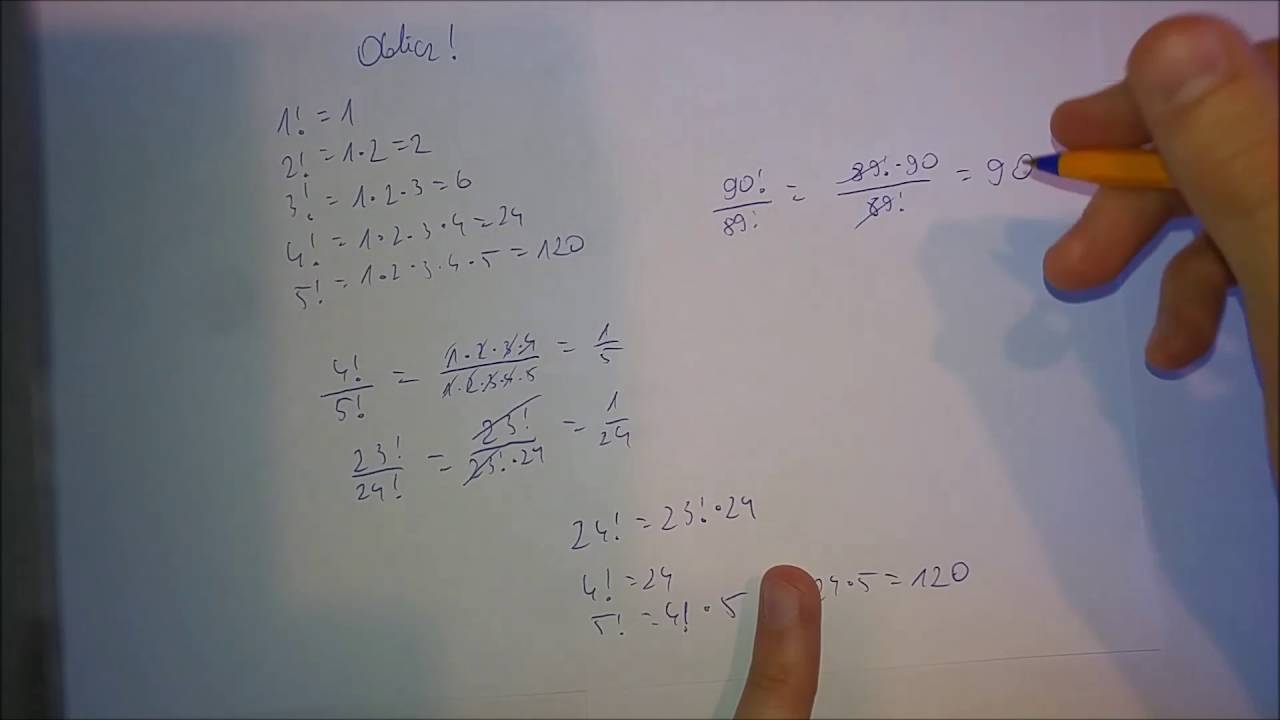 Oblicz!
1! = 1
2! = 1·2 = 2
3! = 1·2·3 = 6
4! = 1·2·3·4 = 24
5! = 1·2·3·4·5 = 120
4!/5! = 1·2·3·4/1·2·3·4·5 = 1/5
23!/24! = 23!/23!·24 = 1/24
24! = 23!·24
4! = 24
5! = 4!·5 24·5 = 120
90!/89! = 89!·90/89! = 90